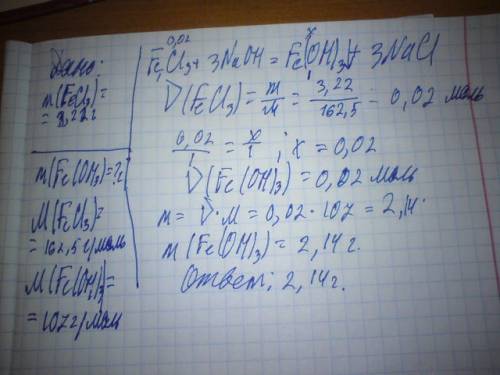 Дано:
m(FeCl3)=
= 3,22г
m(Fe(OH)3)=?г
M(FeCl3)=
= 162,5 г/моль
M(Fe(OH)3)=
= 107 г/моль
0,02 x
FeCl3 + 3NaOH = Fe(OH)3↓ + 3NaCl
1 1
ν(FeCl3) = m/M = 3,22/162,5 = 0,02 моль
0,02/1 = x/1 ; x = 0,02
ν(Fe(OH)3) = 0,02 моль
m = ν · M = 0,02 · 107 = 2,14.
m(Fe(OH)3) = 2,14 г.
Ответ: 2,14г.